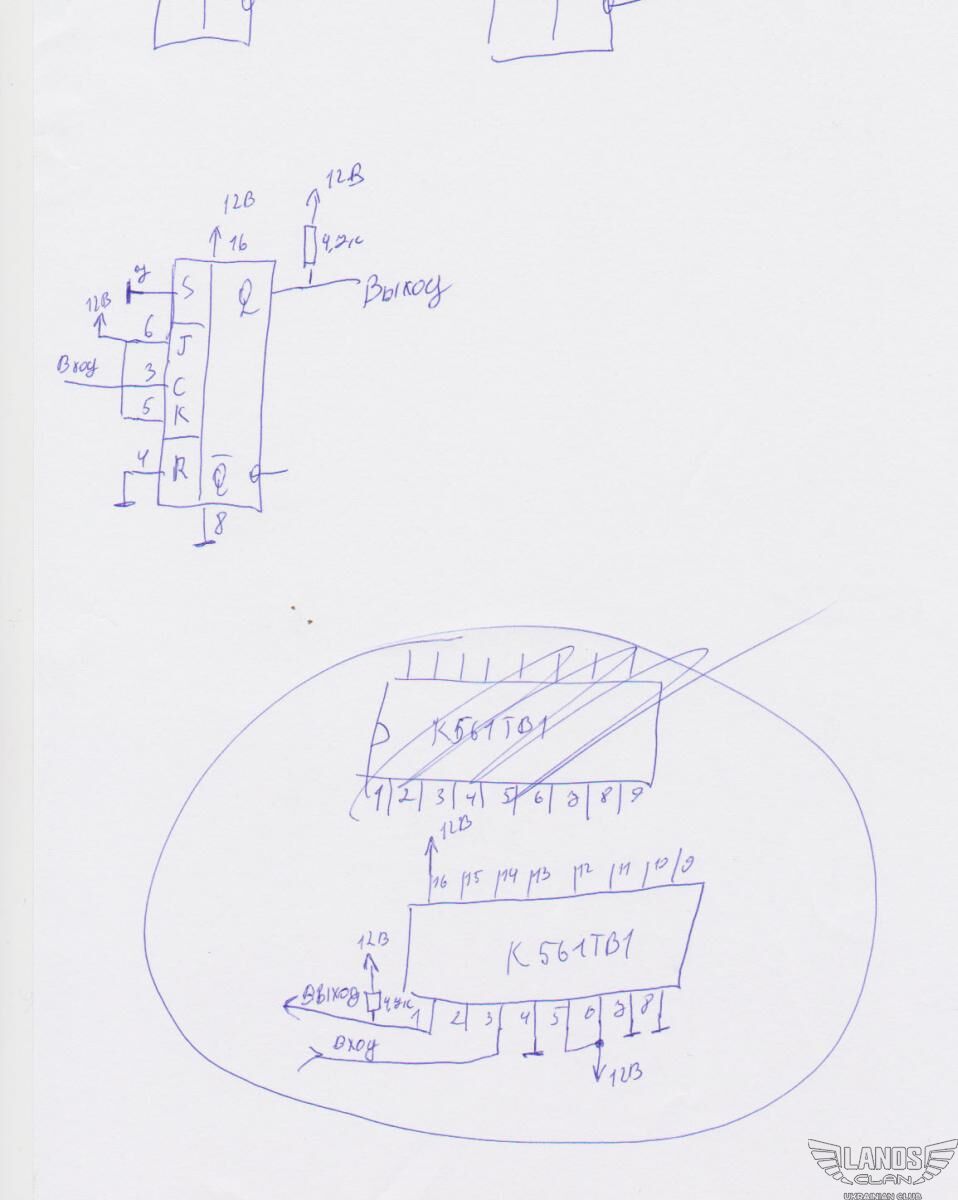 12В
12В
16
4,7к
7
S
Q
Выход
12В
6
J
Вход
3
C
5
K
4
R
Q̅
8
К561ТВ1
1 2 3 4 5 6 7 8 9
12В
16 15 14 13 12 11 10 9
К561ТВ1
12В
Выход
4,7к
1 2 3 4 5 6 7 8
вход
12В
LANOS
CLAN
UKRAINIAN CLUB